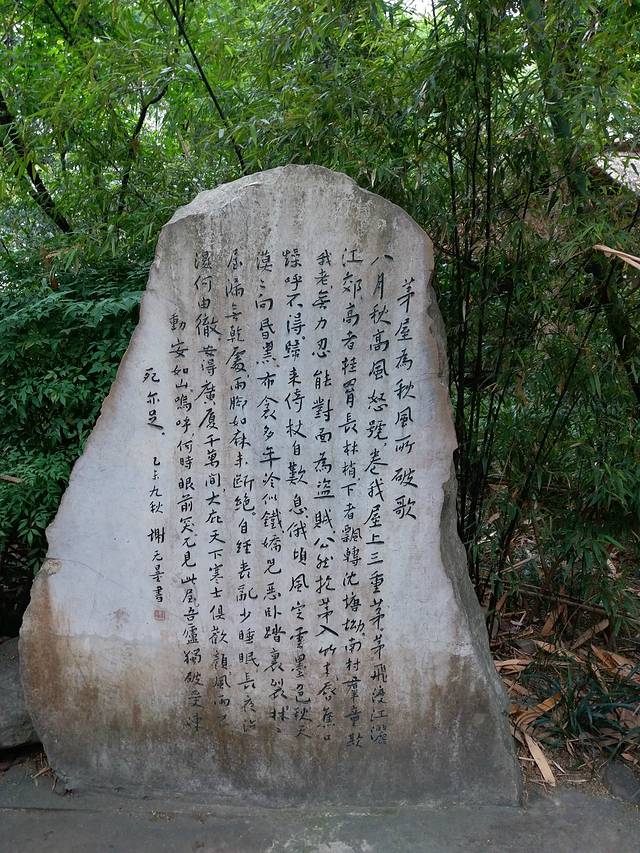 茅屋為秋風所破歌
八月秋高風怒號卷我屋上三重茅茅飛渡江灑
江郊高者挂罥長林梢下者飄轉沈塘坳南村羣童欺
我老無力忍能對面為盜賊公然抱茅入竹去唇焦口
燥呼不得歸來倚杖自歎息俄頃風定雲墨色秋天
漠〻向昏黑布衾多年冷似鐵嬌兒惡卧踏裏裂牀〻
屋漏無乾處雨脚如麻未斷絕。自經喪亂少睡眠長夜沾
濕何由徹安得廣厦千萬間大庇天下寒士俱歡顏風雨不
動安如山嗚呼何時眼前突兀見此屋吾廬獨破受凍
死亦足。 乙未九秋 謝无量書